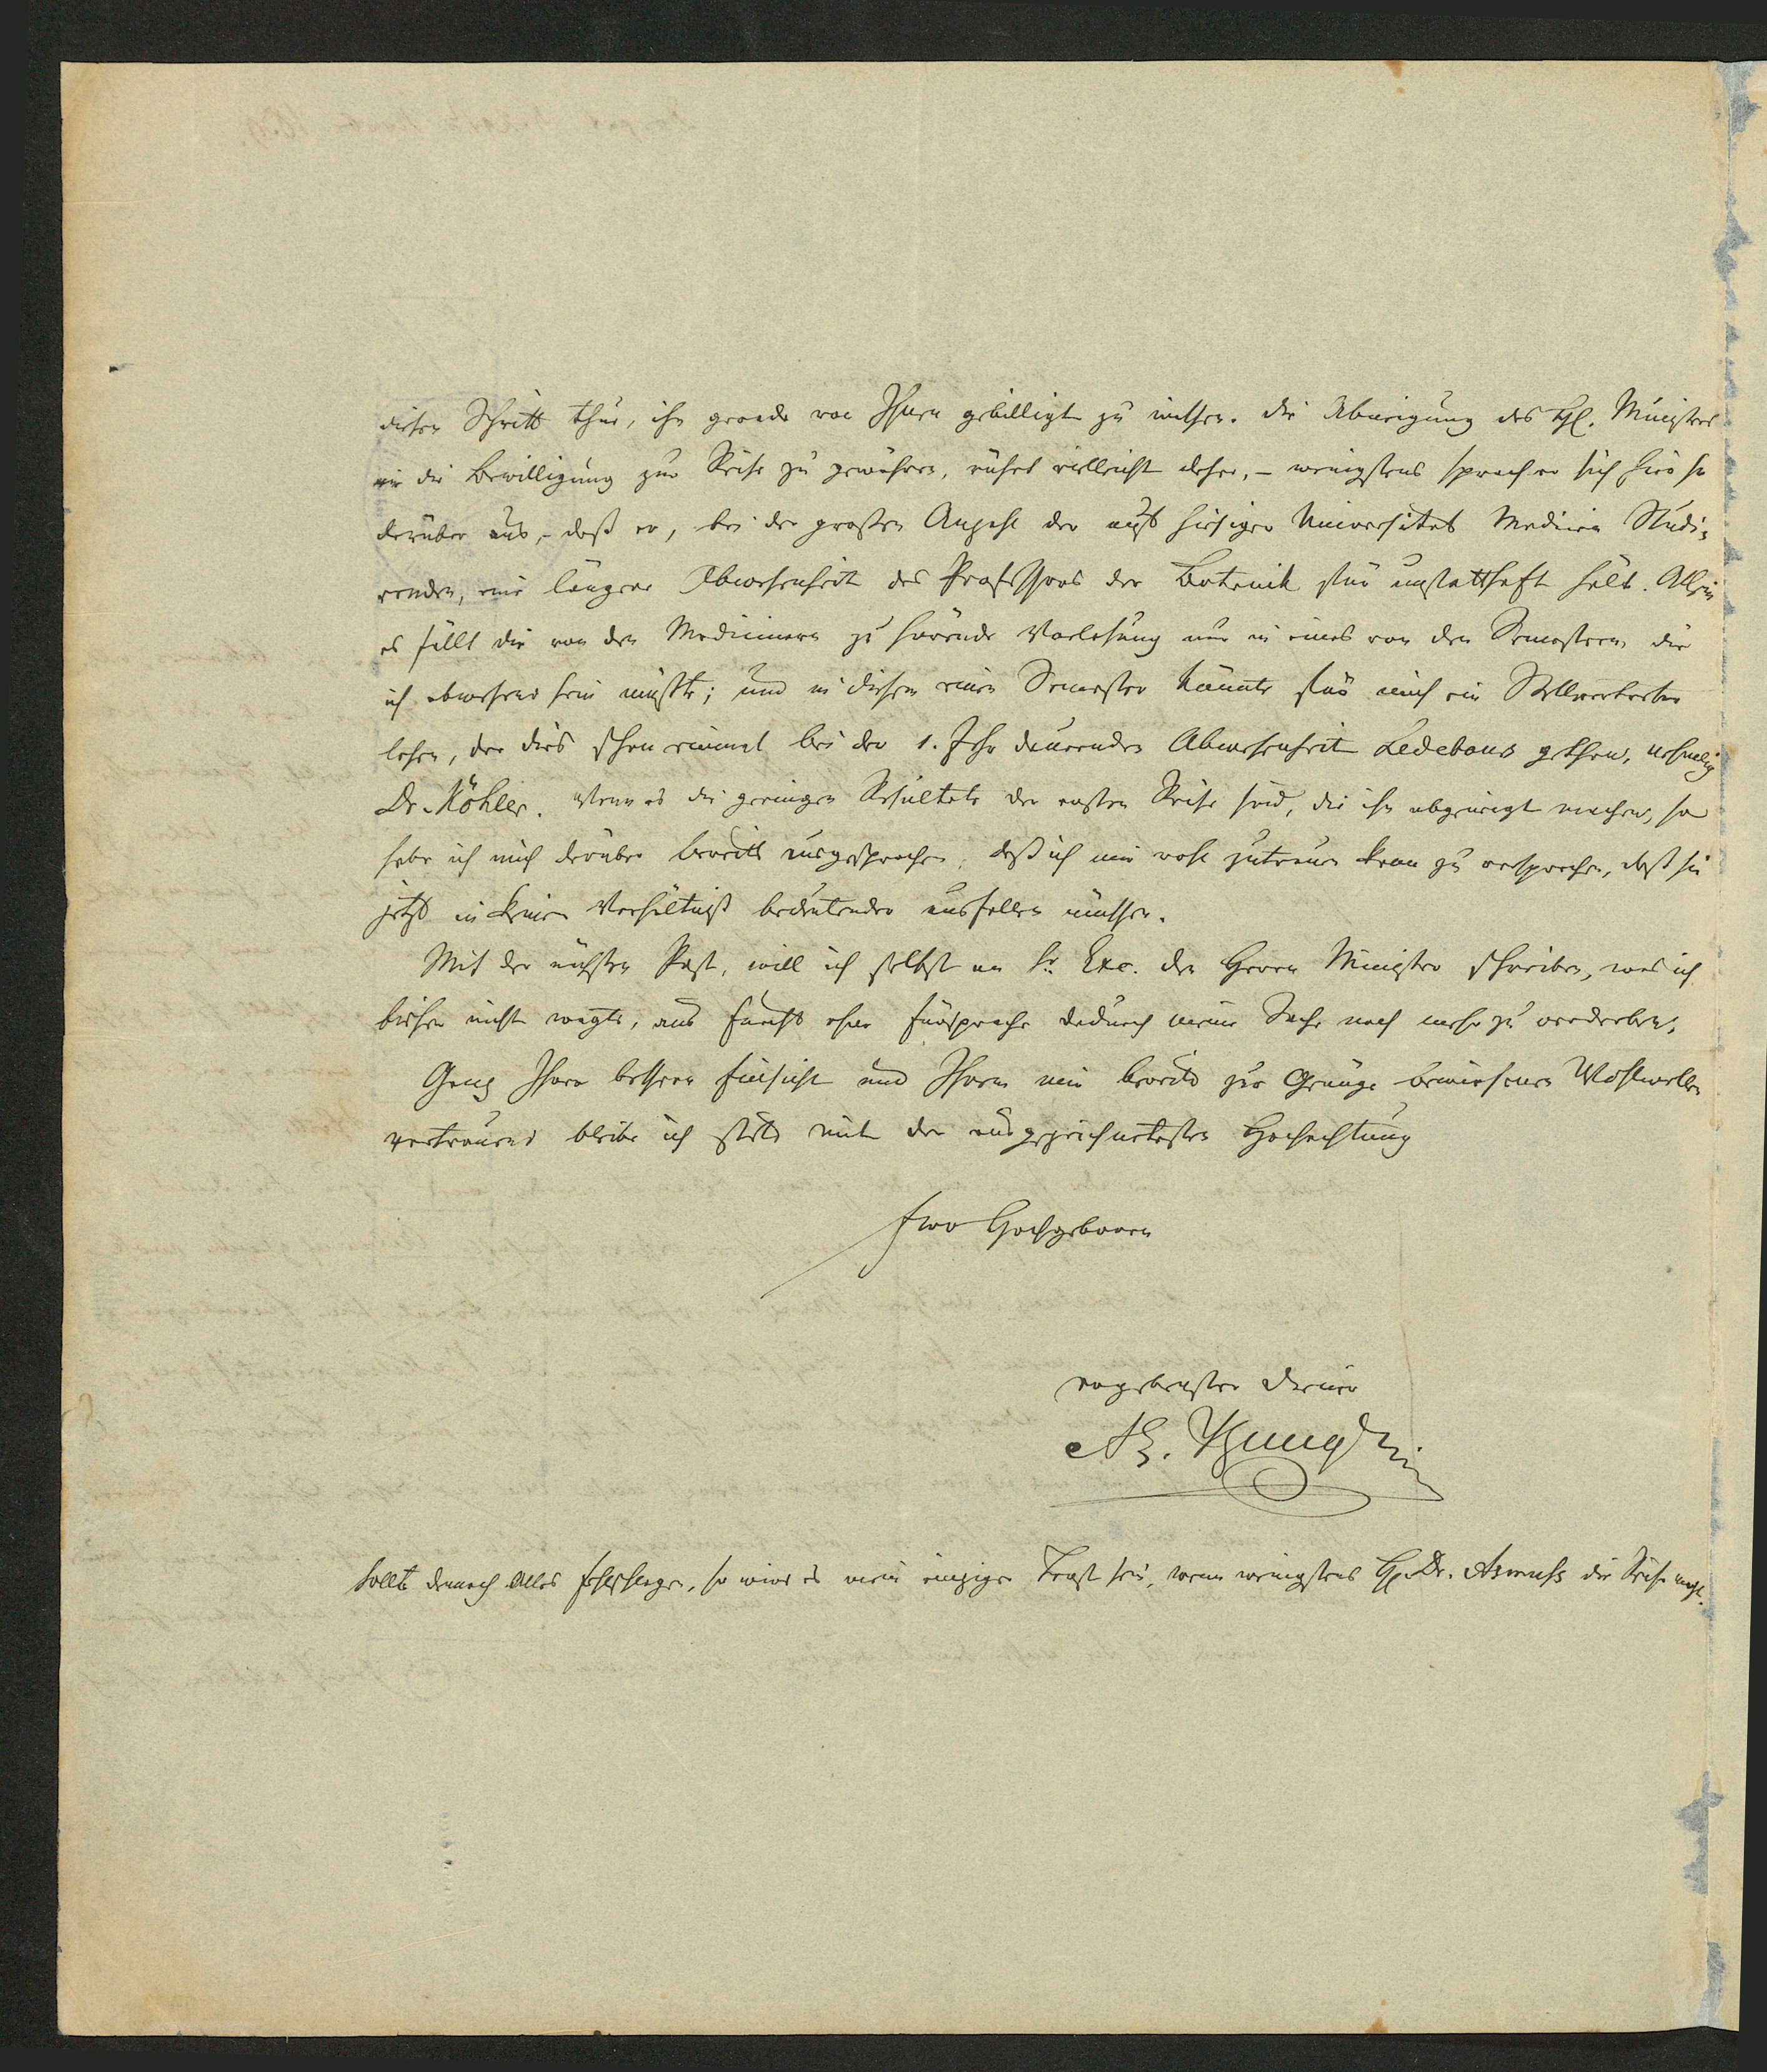 diesen Schritt thue, ihn gerade von Ihnen gebilligt zu wissen. Die Abneigung des H. Ministers
mir die Bewilligung zur Reise zu gewähren, rührt vielleicht daher, – wenigstens sprach er sich hier so
darüber aus, – daß er, bei der großen Anzahl der auf hiesiger Universitet Medicin Studi-
renden, eine längere Abwesenheit des Professors der Botanik für unstatthaft hält. Allein
es fällt die von den Medicinern zu hörende Vorlesung nur in eines von den Semestern die
ich abwesend sein müßte; und in diesem einen Semester könnte für mich ein Stellvertreter
lesen, der dies schon einmal bei der 1. Jahr dauernden Abwesenheit Ledebours gethan, nehmlich
Dr. Köhler. Wenn es die geringen Resultate der ersten Reise sind, die ihn abgeneigt machen, so
habe ich mich darüber bereits ausgesprochen, daß ich mir wohl zutrauen kann zu versprechen, daß sie
jetzt in keinem Verhältniß bedeutender ausfallen müssen.
Mit der nächsten Post, will ich selbst an Sr. Exc. den Herrn Minister schreiben, was ich
bisher nicht wagte, aus Furcht ohne Fürsprache dadurch meine Sache noch mehr zu verderben.
Ganz Ihrer bessern Einsicht und Ihrem mir bereits zur Genüge bewiesenen Wohlwollen
vertrauend bleibe ich stets mit der ausgezeichnetesten Hochachtung
Ewr Hochgeboren
ergebenster Diener
Al. Bunge
Sollte dennoch Alles fehlschlagen, so wird es mein einziger Trost sein, wenn wenigstens H. Dr. Asmuss die Reise macht.